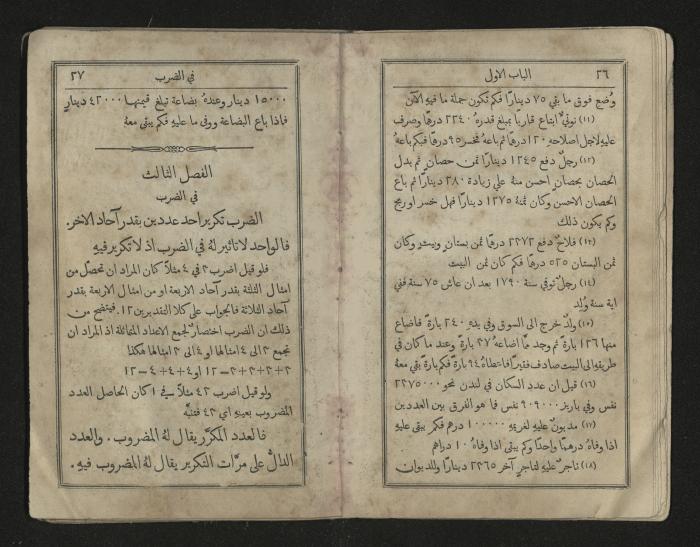 ٢٦ الباب الاول
وُضع فوق ما بقي ٧٥ دينارًا فكم تكون جملة ما فيهِ الآن
(١١) نوتيٌّ ابتاع قاربًا بمبلغ قدرهُ ٢٣٤٠ درهمًا وصرف
عليهِ لاجل اصلاحهِ ١٢٠ درهمًا ثم باعهُ فخسر ٩٥ درهمًا فبكم باعهُ
(١٢) رجلٌ دفع ١٢٤٥ دينارًا ثمن حصانٍ ثم بدل
الحصان بحصانٍ احسن منهُ على زيادة ٢٨٠ دينارًا ثم باع
الحصان الاحسن وكان ثمنهُ ١٢٧٥ دينارًا فهل خسر او ربح
وكم يكون ذلك
(١٣) فلاحٌ دفع ٢٢٧٣ درهمًا ثمن بستانٍ وبيتٍ وكان
ثمن البستان ٥٢٥ درهمًا فكم كان ثمن البيت
(١٤) رجلٌ توفي سنة ١٧٩٠ بعد ان عاش ٧٥ سنة ففي
اية سنة وُلد
(١٥) ولدٌ خرج الى السوق وفي يدهِ ٢٤٠ بارةً فاضاع
منها ١٣٦ بارةً ثم وجد ممّا اضاعهُ ٢٧ بارةً وعند ما كان في
طريقهِ الى البيت صادف فقيرًا فاعطاهُ ٩٤ بارةً فكم بارةً بقي معهُ
(١٦) قيل ان عدد السكان في لندن نحو ٢٢٧٥٠٠٠
نفس وفي باريز ٩٠٩٠٠٠ نفس فما هو الفرق بين العددين
(١٧) مديونٌ عليهِ لغريمهِ ١٠٠٠٠٠ درهم فكم يبقى عليهِ
اذا وفاهُ درهمًا واحدًا وكم يبقى اذا وفاهُ ١٠ دراهم
(١٨) تاجرٌ عليهِ لتاجرٍ آخر ٢٣٦٥ دينارًا وللديوان
في الضرب ٢٧
١٥٠٠٠ دينار وعندهُ بضاعة تبلغ قيمتها ٤٢٠٠٠ دينارٍ
فاذا باع البضاعة ووفى ما عليهِ فكم يبقى معهُ
الفصل الثالث
في الضرب
الضرب تكرير احد عددين بقدر آحاد الاخر.
فالواحد لا تاثير لهُ في الضرب اذ لا تكرير فيهِ
فلو قيل اضرب ٣ في ٤ مثلًا كان المراد ان تحصّل من
امثال الثلثة بقدر آحاد الاربعة او من امثال الاربعة بقدر
آحاد الثلاثة فالجواب على كلا التقديرين ١٢. فيتضح من
ذلك ان الضرب اختصارٌ لجمع الاعداد المتماثلة اذ المراد ان
تجمع ٣ الى ٤ امثالها او ٤ الى ٣ امثالها هكذا
٣+٣+٣+٣=١٢ او ٤+٤+٤=١٢
ولو قيل اضرب ٤٣ مثلًا في ١ كان الحاصل العدد
المضروب بعينهِ اي ٤٣ فتنبَّه
فالعدد المكرَّر يقال لهُ المضروب. والعدد
الدالُّ على مرَّات التكرير يقال لهُ المضروب فيهِ.